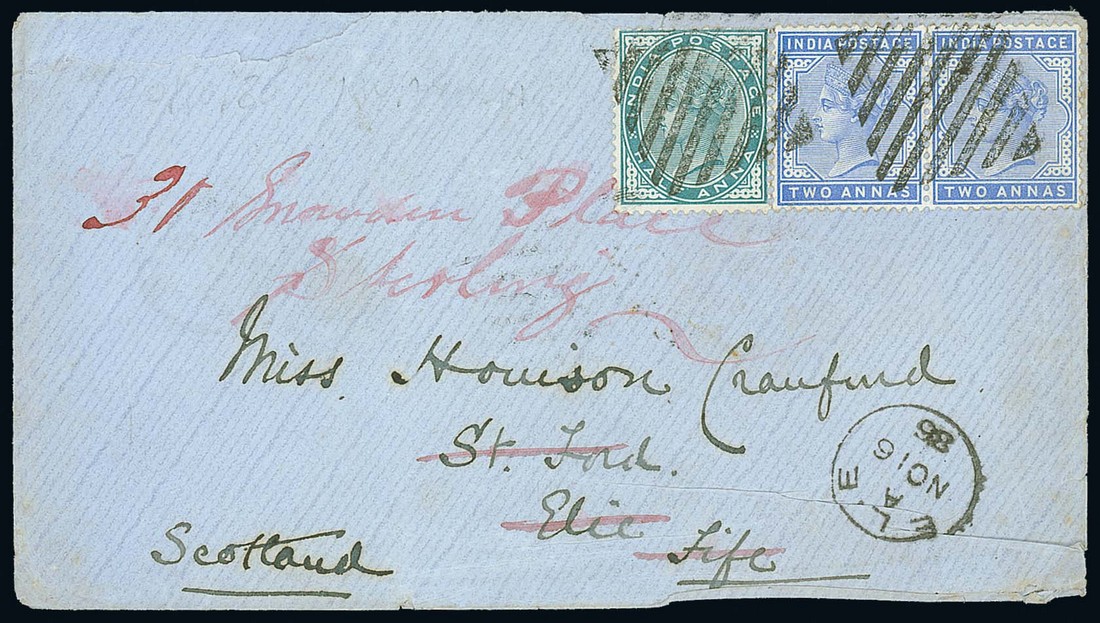 INDIA POSTAGE
HALF ANNA
INDIA POSTAGE
TWO ANNAS
INDIA POSTAGE
TWO ANNAS
31 Snowdon Place
Sterling
Miss Houison Craufurd
St. Ford.
Elie
Fife
Scotland
ELIE
A
NO 16